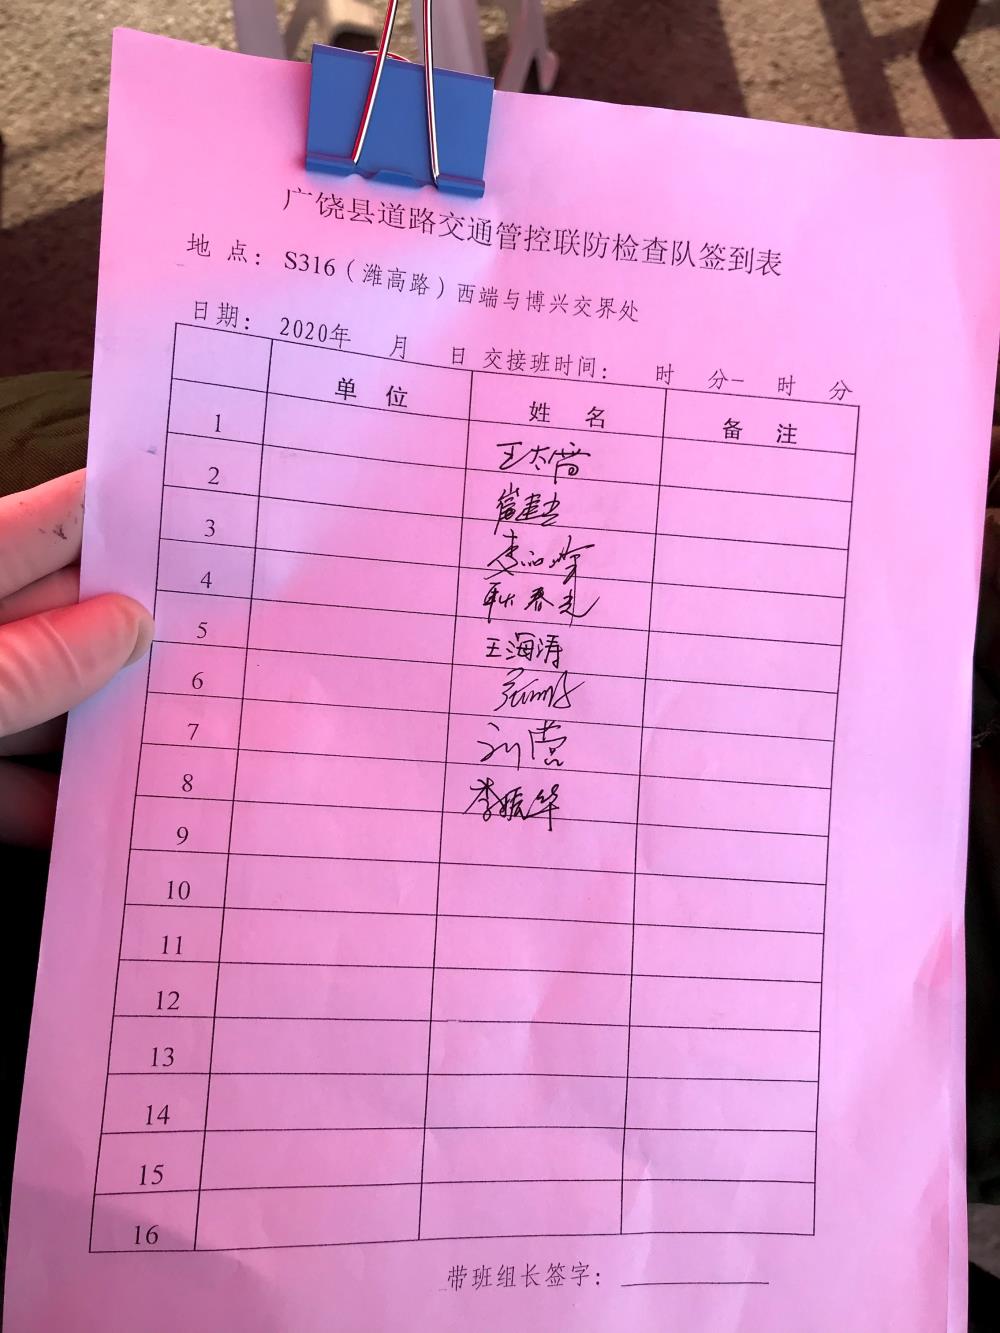 广饶县道路交通管控联防检查队签到表
地 点: S316（潍高路）西端与博兴交界处
日期: 2020年 月 日 交接班时间: 时 分- 时 分
单 位 姓 名 备 注
1 王
2 崔建
3 李
4 耿春光
5 王海涛
6 张
7 刘营
8 李振华
9
10
11
12
13
14
15
16
带班组长签字: